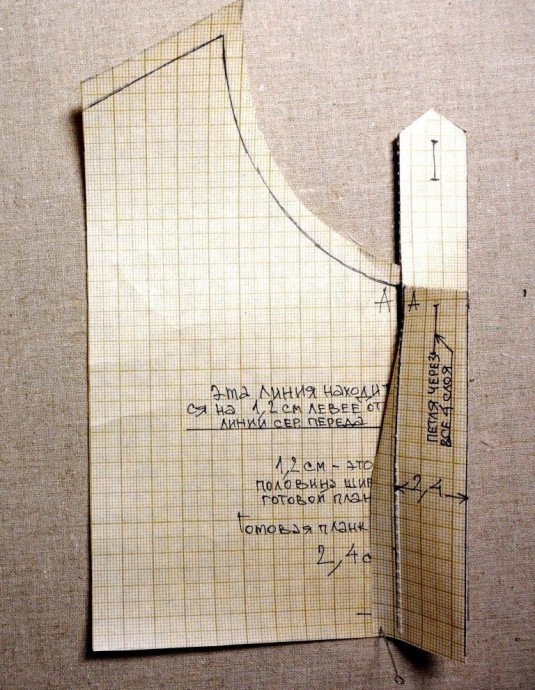 Эта линия находит
ся на 1,2 см левее от
линии сер переда
1,2 см - это
половина шир
готовой план
Готовая планк
2,4 с
А А
петля через
все 4 слоя
2,4